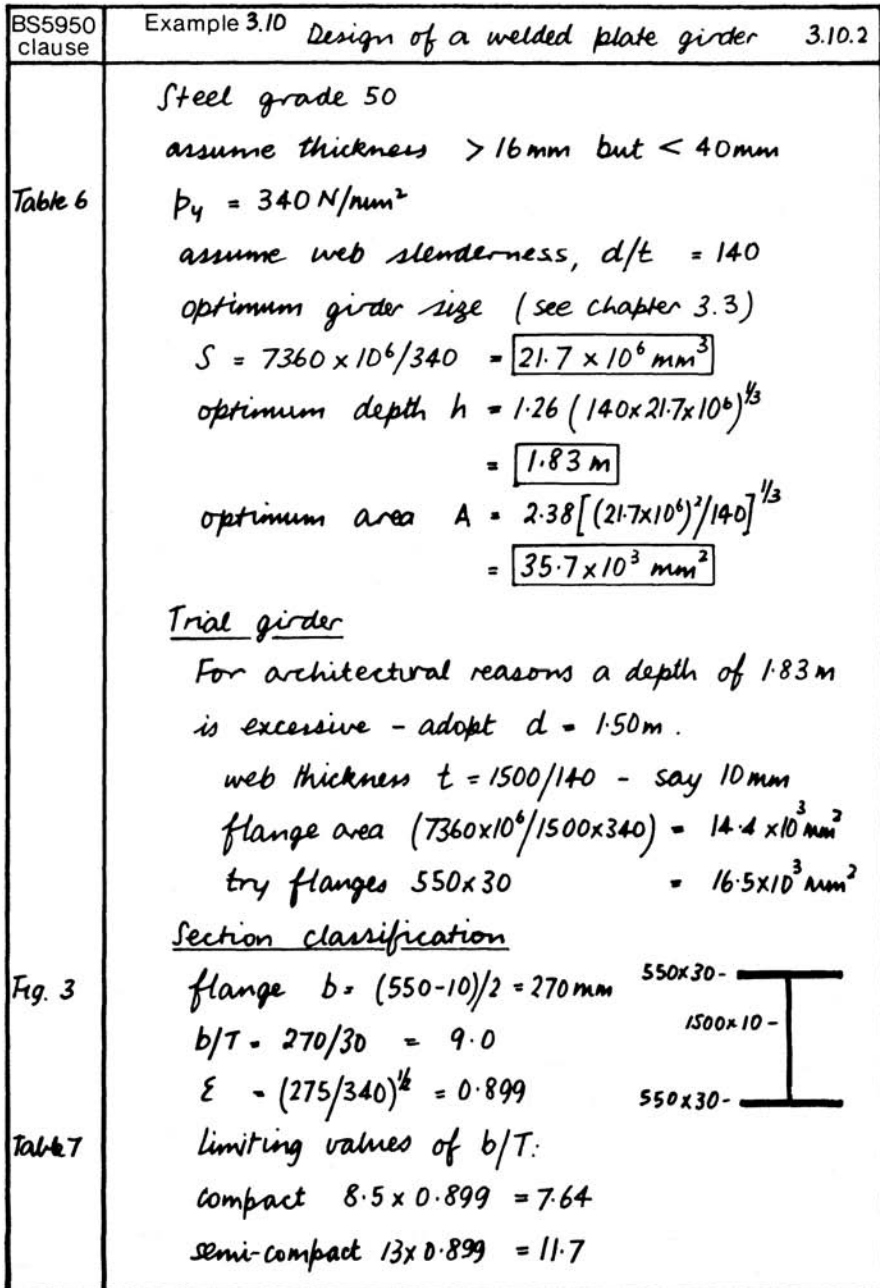 BS5950 clause
Example 3.10 Design of a welded plate girder 3.10.2
Steel grade 50
assume thickness > 16mm but < 40mm
Table 6 py = 340 N/mm²
assume web slenderness, d/t = 140
optimum girder size (see chapter 3.3)
S = 7360 x 10⁶/340 = 21.7 x 10⁶ mm³
optimum depth h = 1.26 (140x21.7x10⁶)^1/3
= 1.83 m
optimum area A = 2.38[(21.7x10⁶)²/140]^1/3
= 35.7 x 10³ mm²
Trial girder
For architectural reasons a depth of 1.83 m
is excessive - adopt d = 1.50m.
web thickness t = 1500/140 - say 10mm
flange area (7360x10⁶/1500x340) = 14.4 x10³ mm²
try flanges 550x30 = 16.5x10³ mm²
Section classification
Fig. 3 flange b = (550-10)/2 = 270 mm
550x30-
b/T = 270/30 = 9.0
1500x10-
ε = (275/340)^1/2 = 0.899
550x30-
Table 7 limiting values of b/T:
compact 8.5 x 0.899 = 7.64
semi-compact 13x0.899 = 11.7